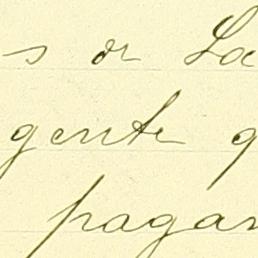 s or La
gente q
pagar